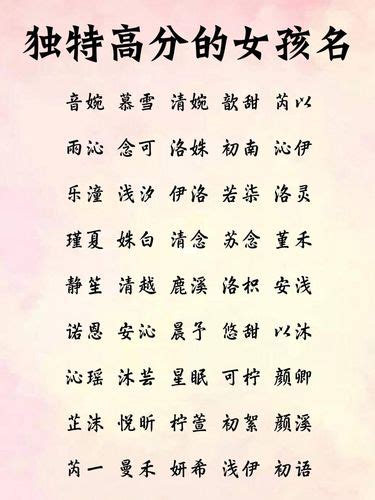 独特高分的女孩名
音婉 慕雪 清婉 歆甜 芮以
雨沁 念可 洛姝 初南 沁伊
乐潼 浅汐 伊洛 若柒 洛灵
瑾夏 姝白 清念 苏念 堇禾
静笙 清越 鹿溪 洛枳 安浅
诺恩 安沁 晨予 悠甜 以沐
沁瑶 沐芸 星眠 可柠 颜卿
芷沫 悦昕 柠萱 初絮 颜溪
芮一 曼禾 妍希 浅伊 初语